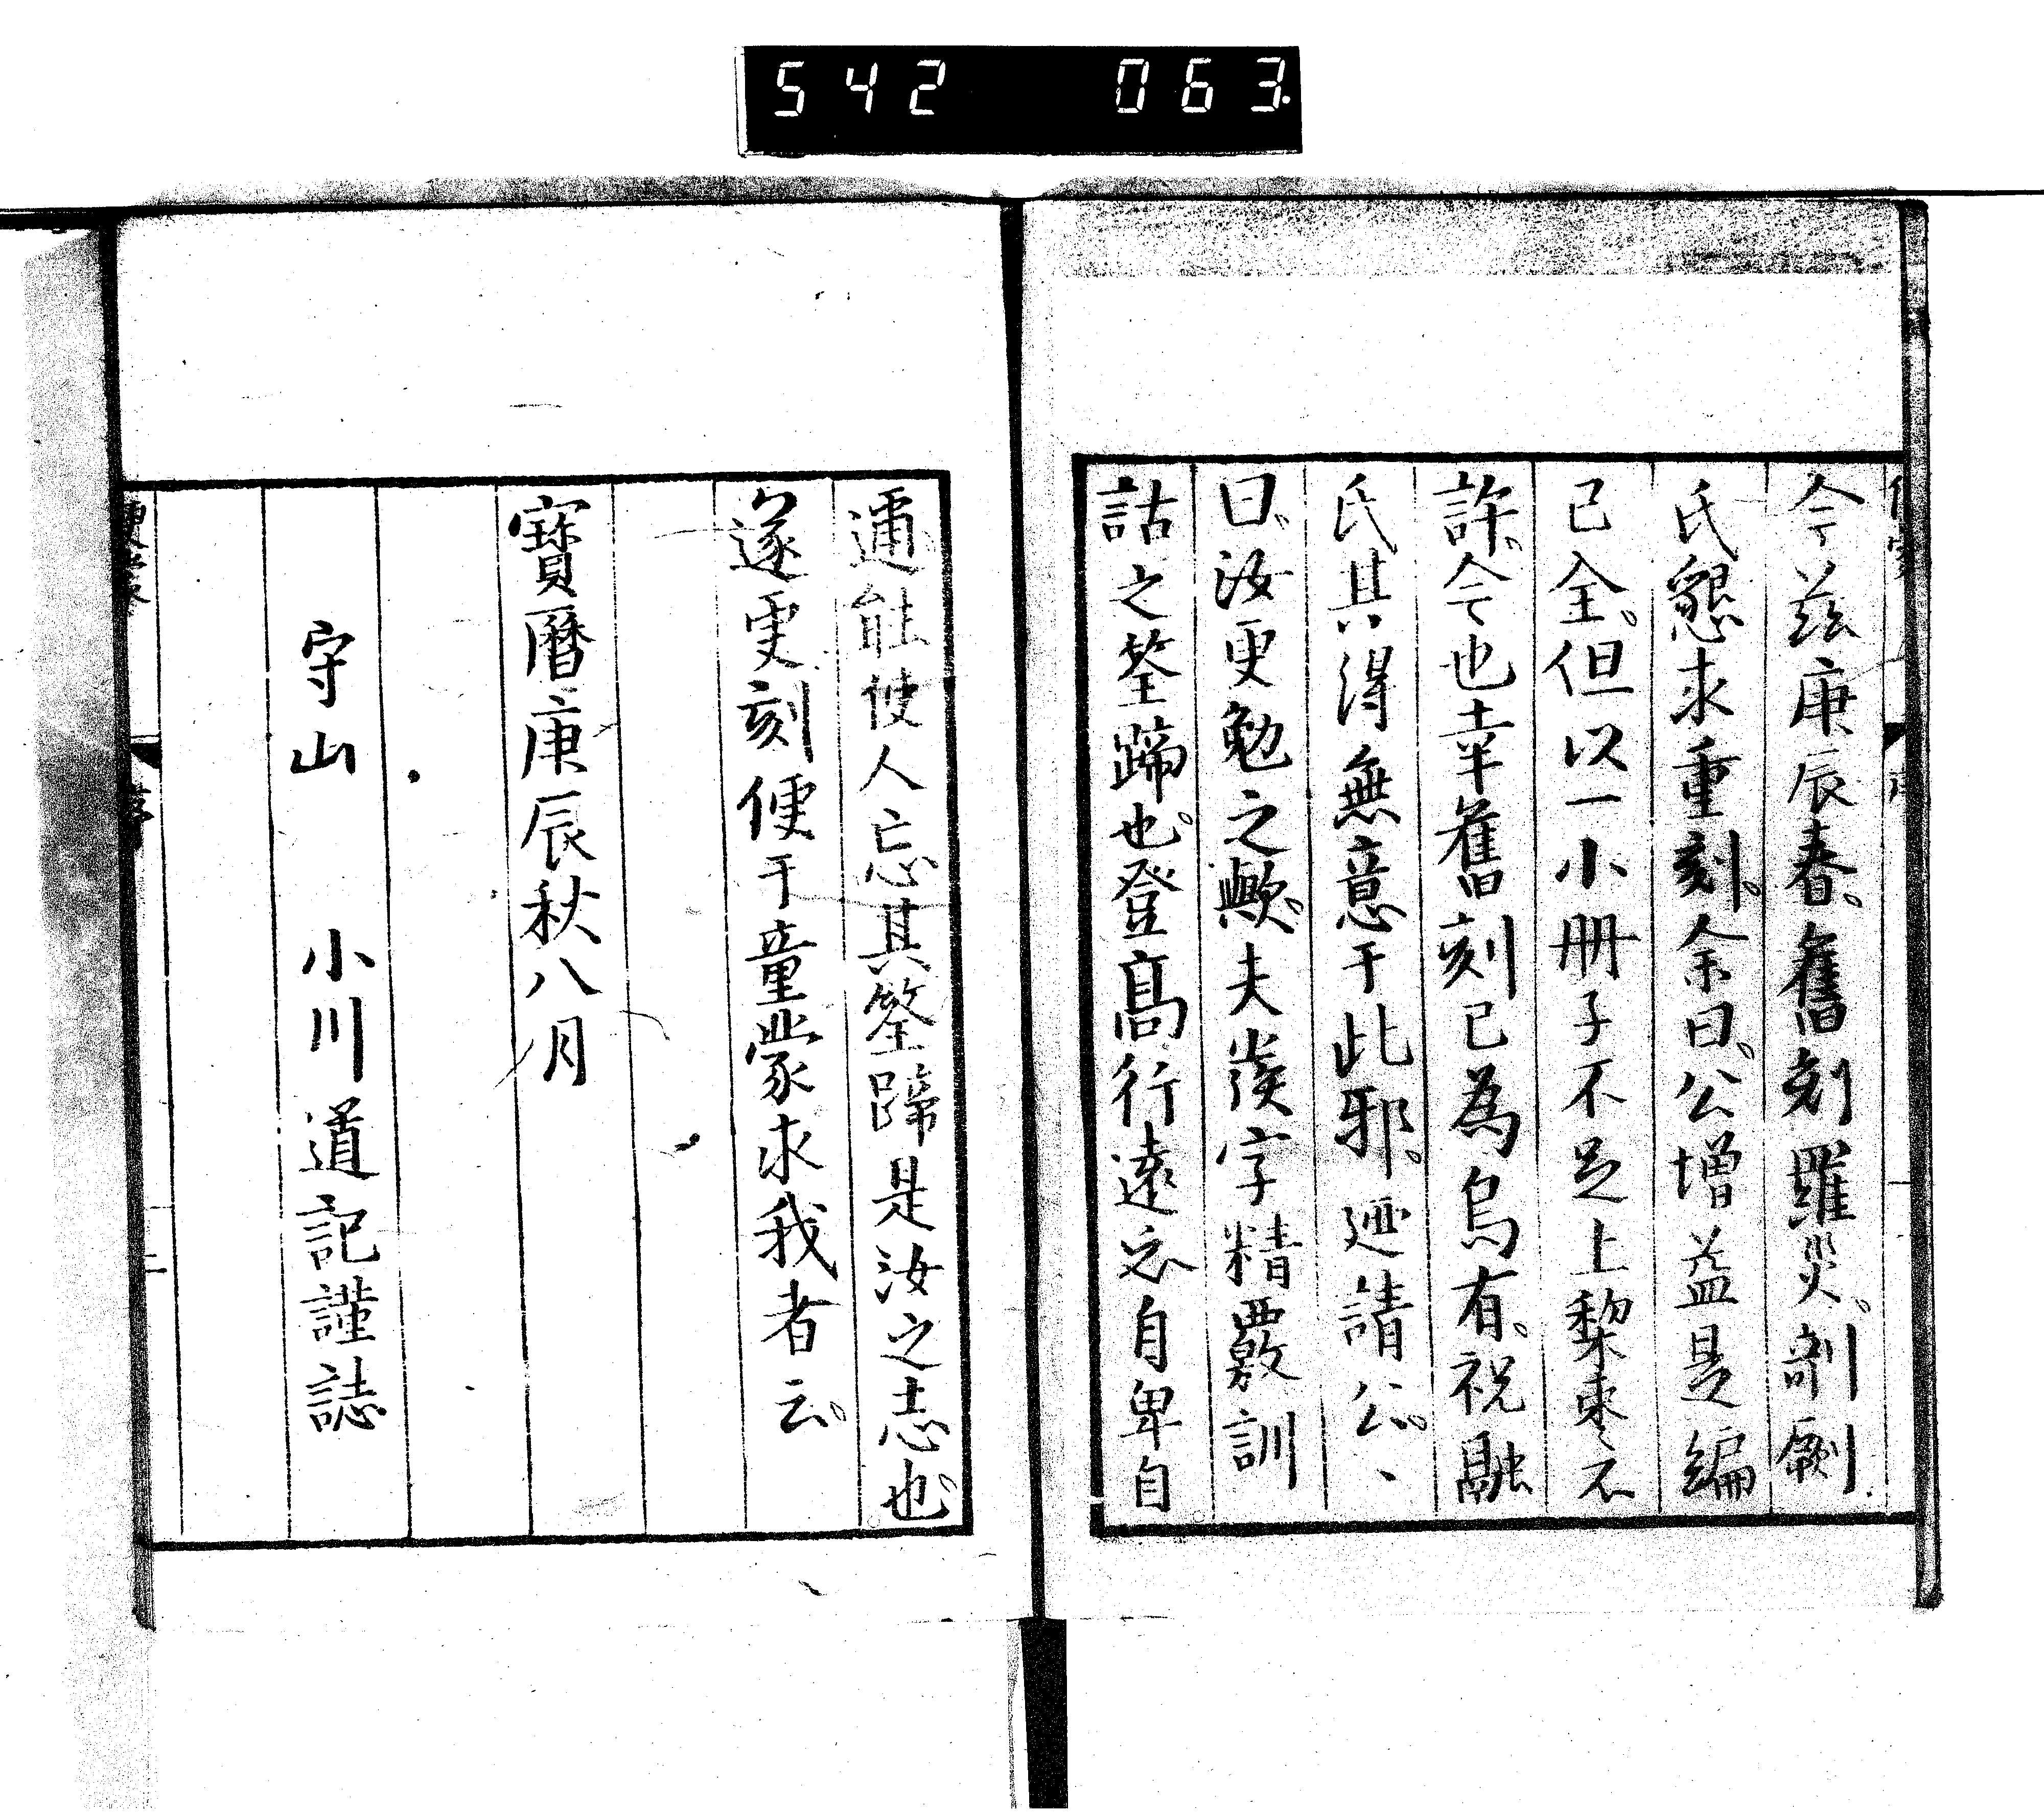 542 063
今茲庚辰春。舊刻羅災。剞劂
氏懇求重刻。余曰。公增益是編
已全。但以一小冊子不足上棃棗不
許。今也幸舊刻已為烏有。祝融
氏其得無意于此邪。遂請公、
曰。汝更勉之歟。夫炎字精覈訓
詁之筌蹄也。登髙行遠必自卑自
邇能使人忘其筌蹄是汝之志也。
遂更刻便于童蒙求我者云。
寶曆庚辰秋八月
守山 小川道記謹誌